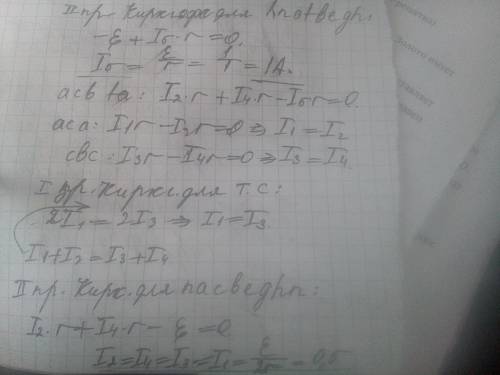 II пр. Кирхгофа для hnatведh:
-ε + I5·r = 0.
I5 = ε/r = 1/1 = 1A.
acbta: I2·r + I4·r - I5r = 0.
aca: I1r - I2r = 0 ⇒ I1 = I2
cbc: I3r - I4r = 0 ⇒ I3 = I4
I пр. Кирхг. для т. c:
2I1 = 2I3 ⇒ I1 = I3.
I1 + I2 = I3 + I4
II пр. Кирх. для nacbедhn:
I2·r + I4·r - ε = 0
I2 = I4 = I3 = I1 = ε/2r = 0,5